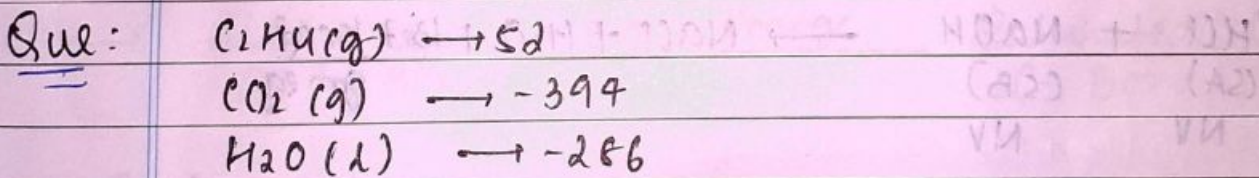 Que: C2H4(g) → 52
CO2 (g) → -394
H2O (l) → -286